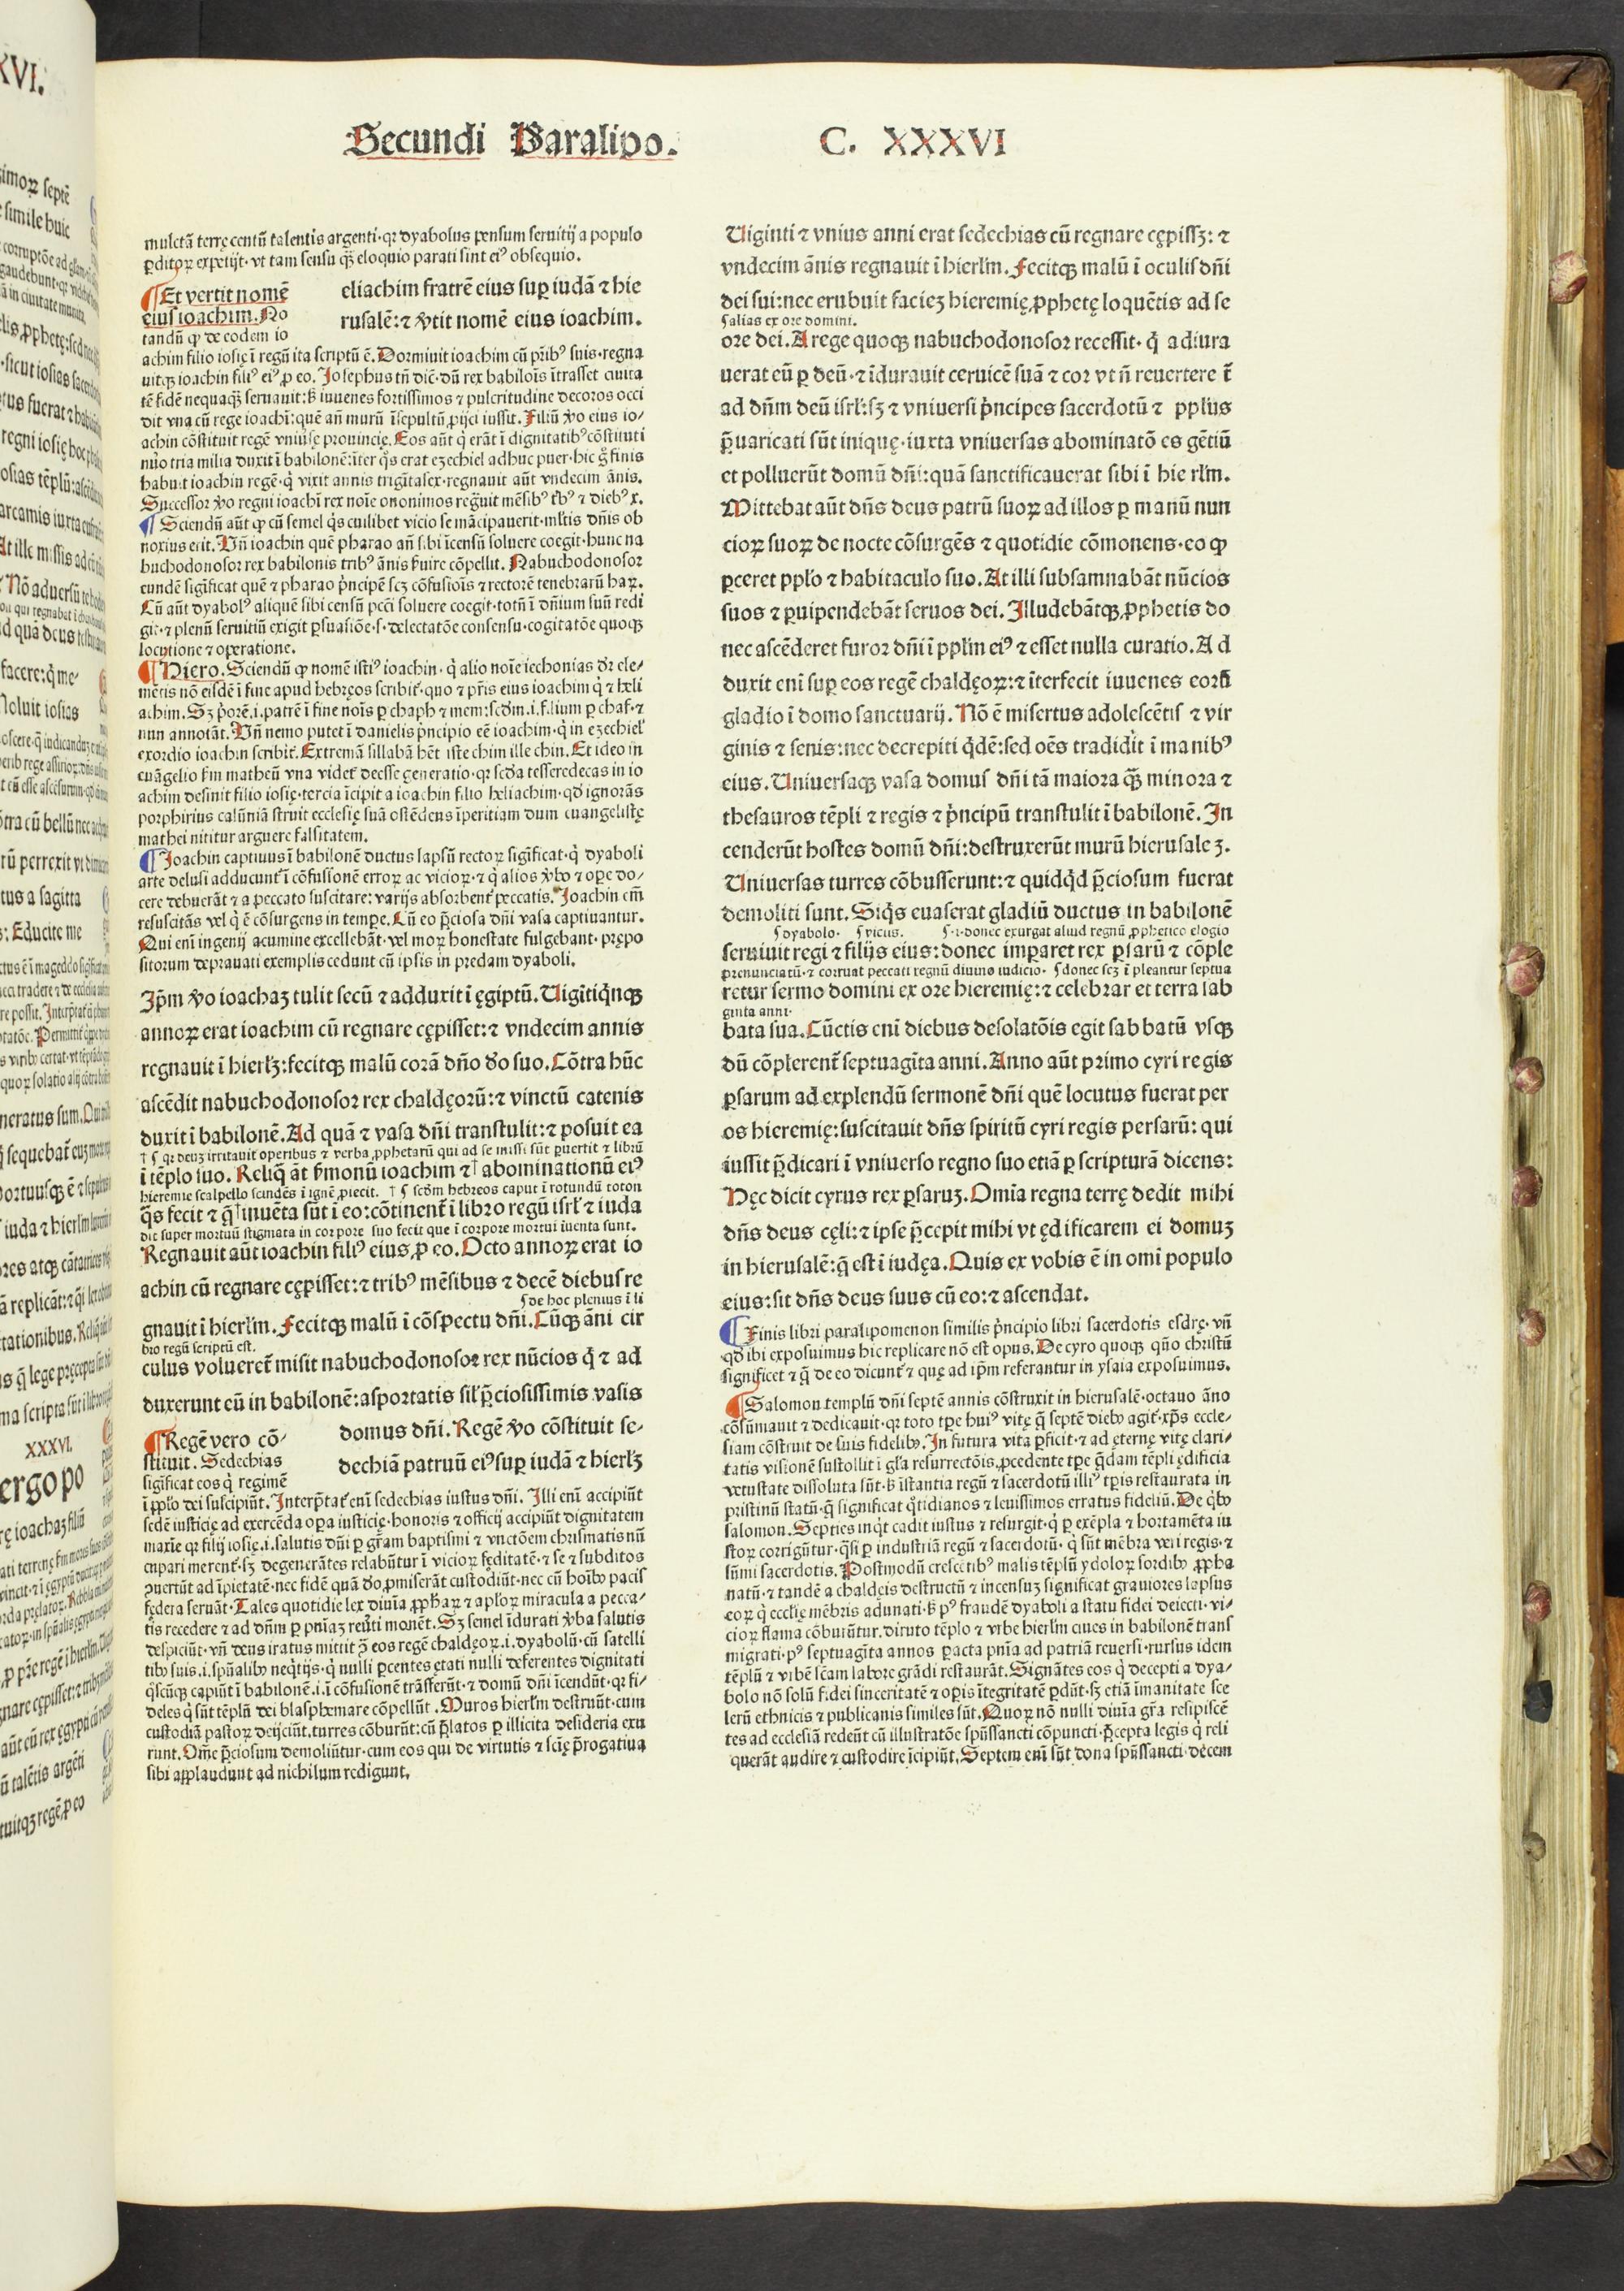 Secundi Paralipo. C. XXXVI
mulctā terrę centū talentis argenti·qꝛ dyabolus pensum seruitij a populo
ꝑditoꝝ expetijt·vt tam sensu qͣꝫ eloquio parati sint eiꝰ obsequio.
¶Et vertit nomē
eius ioachim. No
tandū ꝙ de eodem io
eliachim fratrē eius suꝑ iudā ⁊ hie
rusalē:⁊ v̓tit nomē eius ioachim.
achim filio iosię ī regū ita scriptū ē. Dormiuit ioachim cū pr̄ibꝰ suis·regna
uitqꝫ ioachin filiꝰ eiꝰ ꝓ eo. Josephus tn̄ dic̄·dū rex babilois ītrasset ciuita
tē fidē nequaqͣꝫ seruauit:ꝫ iuuenes fortissimos ⁊ pulcritudine decoros occi
dit vna cū rege ioachī:quē an̄ murū īsepultū ꝓijci iussit. Filiū v̓o eius io/
achin cōstituit regē vniuṡę prouincię. Eos aūt q̇ erāt ī dignitatibꝰ cōstituti
nūo tria milia duxit ī babilonē:īter qͦs erat ezechiel adhuc puer·hic g̊ finis
habuit ioachin regē·q̇ vixit annis trigītasex·regnauit aūt vndecim ānis.
Successor v̓o regni ioachī rex noīe ononimos regnuit mēsibꝰ tbꝰ ⁊ diebꝰ x.
¶ Sciendū aūt ꝙ cū semel qͥs cuilibet vicio se mācipauerit·ml̓tis dn̄is ob
noxius erit. Vn̄ ioachin quē pharao an̄ sibi īcensū soluere coegit·hunc na
buchodonosor rex babilonis tribꝰ ānis ẜuire cōpellit. Nabuchodonosor
eundē sigīficat quē ⁊ pharao pͥncipē scꝫ cōfusiōis ⁊ rectorē tenebrarū haꝝ.
Cū aūt dyabolꝰ aliquē sibi censū pcc̄i soluere coegit·totū ī dn̄ium suū redi
git·⁊ plenū seruitiū exigit ꝑsuasiōe·s·delectatōe consensu·cogitatōe quoqꝫ
locutione ⁊ operatione.
¶Hiero. Sciendū ꝙ nomē istiꝰ ioachin·q̇ alio noīe iechonias dr̄ ele/
mētis nō eisdē ī fine apud hebręos scribit̄·quo ⁊ pr̄is eius ioachim q̇ ⁊ heli
achim. Sꝫ pͥorē.i.patrē ī fine nois ꝑ chaph ⁊ mem:scd̄m.i.filium ꝑ chaf·⁊
nun annotāt. Vn̄ nemo putet ī danielis pͥncipio eē ioachim·q̇ in ezechiel̓
exordio ioachin scribit̄. Extremā sillabā hēt iste chim ille chin. Et ideo in
euāgelio ẜm matheū vna videt̄ deesse generatio·qꝛ scd̄a tesseredecas in io
achim desinit filio iosię·tercia īcipit a ioachin filio heliachim·qd̄ ignorās
porphirius calūniā struit ecclesię suā ostēdens īperitiam dum euangelistę
mathei nititur arguere falsitatem.
¶Joachin captiuus ī babilonē ductus lapsū rectoꝝ sigīficat·q̇ dyaboli
arte delusi adducunt̄ ī cōfusionē erroꝝ ac vicioꝝ·⁊ q̇ alios v̓bo ⁊ oꝑe do/
cere debuerāt ⁊ a peccato suscitare: varijs absorbent̄ peccatis. Joachin em̄
resuscitās vel q̇ ē cōsurgens in tempe. Cū eo p̄ciosa dn̄i vasa captiuantur.
Qui enī ingenij acumine excellebāt·vel moꝝ honestate fulgebant·prępo
sitorum deprauati exemplis cedunt cū ipsis in predam dyaboli.
Jpm̄ v̓o ioachaꝫ tulit secū ⁊ adduxit ī ęgiptū. Uigītiqͥnqꝫ
annoꝝ erat ioachim cū regnare cępisset:⁊ vndecim annis
regnauit ī hierlꝫ:fecitqꝫ malū corā dn̄o do̓ suo. Cōtra hūc
ascēdit nabuchodonosor rex chaldęorū:⁊ vinctū catenis
duxit ī babilonē. Ad quā ⁊ vasa dn̄i transtulit:⁊ posuit ea
† ⸿ qꝛ deuꝫ irritauit operibus ⁊ verba ꝓphetarū qui ad se missi sūt ꝑuertit ⁊ librū
ī tēplo suo. Reliq̄ āt ẜmonū ioachim ⁊† abominationū eiꝰ
hieremie scalpello scindēs ī ignē ꝓiecit. † ⸿ scd̄m hebreos caput ī rotundū toton
q̄s fecit ⁊ q̄†inuēta sūt ī eo:cōtinent̄ ī libro regū isrl̓ ⁊ iuda
dit super mortuū stigmata in corpore suo fecit que ī corpore mortui iuenta sunt.
Regnauit aūt ioachin filiꝰ eius ꝓ eo. Octo annoꝝ erat io
achin cū regnare cępisset:⁊ tribꝰ mēsibus ⁊ decē diebus re
⸿ de hoc plenius ī li
gnauit ī hierl̓m. Fecitqꝫ malū ī cōspectu dn̄i. Cūqꝫ āni cir
bro regū scriptū est.
culus volueret̄ misit nabuchodonosor rex nūcios q̇ ⁊ ad
duxerunt eū in babilonē:asportatis sil̓ p̄ciosissimis vasis
domus dn̄i. Regē v̓o cōstituit se-
dechiā patruū eiꝰ suꝑ iudā ⁊ hierlꝫ
¶Regē vero cō/
stituit. Sedechias
sigīficat eos q̇ regimē
ī pplo̓ dei suscipiūt. Interp̄tat̄ enī sedechias iustus dn̄i. Illi enī accipiūt
sedē iusticię ad exercēda oꝑa iusticię·honoris ⁊ officij accipiūt dignitatem
maxīe qꝛ filij iosię.i.salutis dn̄i ꝑ gr̄am baptismi ⁊ vnctōem chrismatis nū
cupari merent̄·sꝫ degenerātes relabūtur ī vicioꝝ fęditatē·⁊ se ⁊ subditos
ꝓuertūt ad īpietatē·nec fidē quā do̓ ꝓmiserāt custodiūt·nec cū hoībꝰ pacis
fędera seruāt. Tales quotidie lex diuīa ꝓphaꝝ ⁊ aploꝝ miracula a pecca/
tis recedere ⁊ ad dn̄m ꝑ pn̄iaꝫ reuti monēt. Sꝫ semel īdurati v̓ba salutis
despiciūt·vn̄ deus iratus mittit ꝯ̄ eos regē chaldęoꝝ.i.dyabolū·cū satelli
tibꝰ suis.i.spūalibꝰ neqͥtijs·q̇ nulli ꝑcentes ętati nulli deferentes dignitati
qͦscūqꝫ capiūt ī babilonē.i.ī cōfusionē trāsferūt·⁊ domū dn̄i īcendūt·qꝛ fi/
deles q̇ sūt tēplū dei blasphemare cōpellūt. Muros hierl̓m destruūt·cum
custodiā pastoꝝ deijciūt·turres cōburūt:cū p̄latos ꝑ illicita desideria exu
runt. Om̄e p̄ciosum demoliūtur·cum eos qui de virtutis ⁊ scię p̄rogatiua
sibi applaudunt ad nichilum redigunt.
Uiginti ⁊ vnius anni erat sedechias cū regnare cępissꝫ: ⁊
vndecim ānis regnauit ī hierl̓m. Fecitqꝫ malū ī oculis dn̄i
dei sui:nec erubuit facieꝫ hieremię ꝓphetę loquētis ad se
⸿ alias ex ore domini.
ore dei. A rege quoqꝫ nabuchodonosor recessit·q̇ adiura
uerat eū ꝑ deū·⁊ īdurauit ceruicē suā ⁊ cor vt n̄ reuertere t̄
ad dn̄m deū isrl̓:sꝫ ⁊ vniuersi pͥncipes sacerdotū ⁊ ppl̓us
p̄uaricati sūt inique·iuxta vniuersas abominatō es gētiū
et polluerūt domū dn̄i:quā sanctificauerat sibi ī hie rl̓m.
Mittebat aūt dn̄s deus patrū suoꝝ ad illos ꝑ manū nun
cioꝝ suoꝝ de nocte cōsurgēs ⁊ quotidie cōmonens·eo ꝙ
ꝑceret pplo̓ ⁊ habitaculo suo. At illi subsamnabāt nūcios
suos ⁊ ꝑuipendebāt seruos dei. Illudebātqꝫ ꝓphetis do
nec ascēderet furor dn̄i ī ppl̓m eiꝰ ⁊ esset nulla curatio. A d
duxit enī suꝑ eos regē chaldęoꝝ:⁊ īterfecit iuuenes eorū
gladio ī domo sanctuarij. Nō ē misertus adolescētis ⁊ vir
ginis ⁊ senis:nec decrepiti qͥdē:sed oēs tradidit ī manibꝰ
eius. Uniuersaqꝫ vasa domus dn̄i tā maiora qͣꝫ minora ⁊
thesauros tēpli ⁊ regis ⁊ pͥncipū transtulit ī babilonē. In
cenderūt hostes domū dn̄i:destruxerūt murū hierusale ꝫ.
Uniuersas turres cōbusserunt:⁊ quidqͥd p̄ciosum fuerat
demoliti sunt. Siqͥs euaserat gladiū ductus in babilonē
⸿ dyabolo. ⸿ vicus. ⸿·i·donec exurgat aliud regnū ꝓphetico elogio
seruiuit regi ⁊ filijs eius:donec imꝑaret rex ꝑsarū ⁊ cōple
prenunciatū·⁊ corruat peccati regnū diuino iudicio. ⸿ donec scꝫ ī pleantur septua
retur sermo domini ex ore hieremię:⁊ celebrar et terra sab
ginta anni.
bata sua. Cūctis enī diebus desolatōis egit sab batū vsqꝫ
dū cōplerent̄ septuagīta anni. Anno aūt primo cyri regis
ꝑsarum ad explendū sermonē dn̄i quē locutus fuerat per
os hieremię:suscitauit dn̄s spiritū cyri regis persarū: qui
iussit p̄dicari ī vniuerso regno suo etiā ꝑ scripturā dicens:
Hęc dicit cyrus rex ꝑsaruꝫ. Omīa regna terrę dedit mihi
dn̄s deus cęli:⁊ ipse p̄cepit mihi vt ędificarem ei domuꝫ
in hierusalē:q̄ est ī iudęa. Quis ex vobis ē in omī populo
eius:sit dn̄s deus suus cū eo:⁊ ascendat.
¶Finis libri paralipomenon similis pͥncipio libri sacerdotis esdrę·vn̄
qd̄ ibi exposuimus hic replicare nō est opus. De cyro quoqꝫ qn̄o christū
significet ⁊ q̄ de eo dicunt̄ ⁊ quę ad ipm̄ referantur in ysaia exposuimus.
¶Salomon templū dn̄i septē annis cōstruxit in hierusalē·octauo āno
cōsūmauit ⁊ dedicauit·qꝛ toto tꝑe huiꝰ vitę q̄ septē diebꝰ agit̄·xp̄s eccle/
siam cōstruit de suis fidelibꝰ. In futura vita ꝑficit·⁊ ad ęternę vitę clari/
tatis visionē sustollit ī gl̓a resurrectōis·ꝓcedente tꝑe q̄dam tēpli ędificia
vetustate dissoluta sūt·ꝫ īstantia regū ⁊ sacerdotū illiꝰ tꝑis restaurata in
pristinū statū·q̄ significat qͦtidianos ⁊ leuissimos erratus fideliū. De qͥbꝰ
salomon. Septies inqͥt cadit iustus ⁊ resurgit·q̇ ꝑ exēpla ⁊ hortamēta iu
stoꝝ corrigūtur·qͣsi ꝑ industriā regū ⁊ sacerdotū·q̇ sūt mēbra veri regis·⁊
sūmi sacerdotis. Postmodū crescētibꝰ malis tēplū ydoloꝝ sordibꝰ ꝓpha
natū·⁊ tandē a chaldęis destructū ⁊ incensuꝫ significat grauiores lapsus
eoꝝ q̇ ecclię mēbris adunati·ꝫ pꝰ fraudē dyaboli a statu fidei deiecti·vi/
cioꝝ flama cōburūtur·diruto tēplo ⁊ vrbe hierl̓m ciues in babilonē trans
migrati·pꝰ septuagīta annos ꝑacta pn̄ia ad patriā reuersi·rursus idem
tēplū ⁊ vrbē scām labore grādi restaurāt. Signātes eos q̇ decepti a dya/
bolo nō solū fidei sinceritatē ⁊ oꝑis ītegritatē ꝑdūt·sꝫ etiā īmanitate sce
lerū ethnicis ⁊ publicanis similes sūt. Quoꝝ nō nulli diuīa gr̄a resipiscē
tes ad ecclesiā redeūt cū illustratōe spūssancti cōpuncti·p̄cepta legis q̇ reli
querāt audire ⁊ custodire īcipiūt. Septem enī sūt dona spūssancti·decem